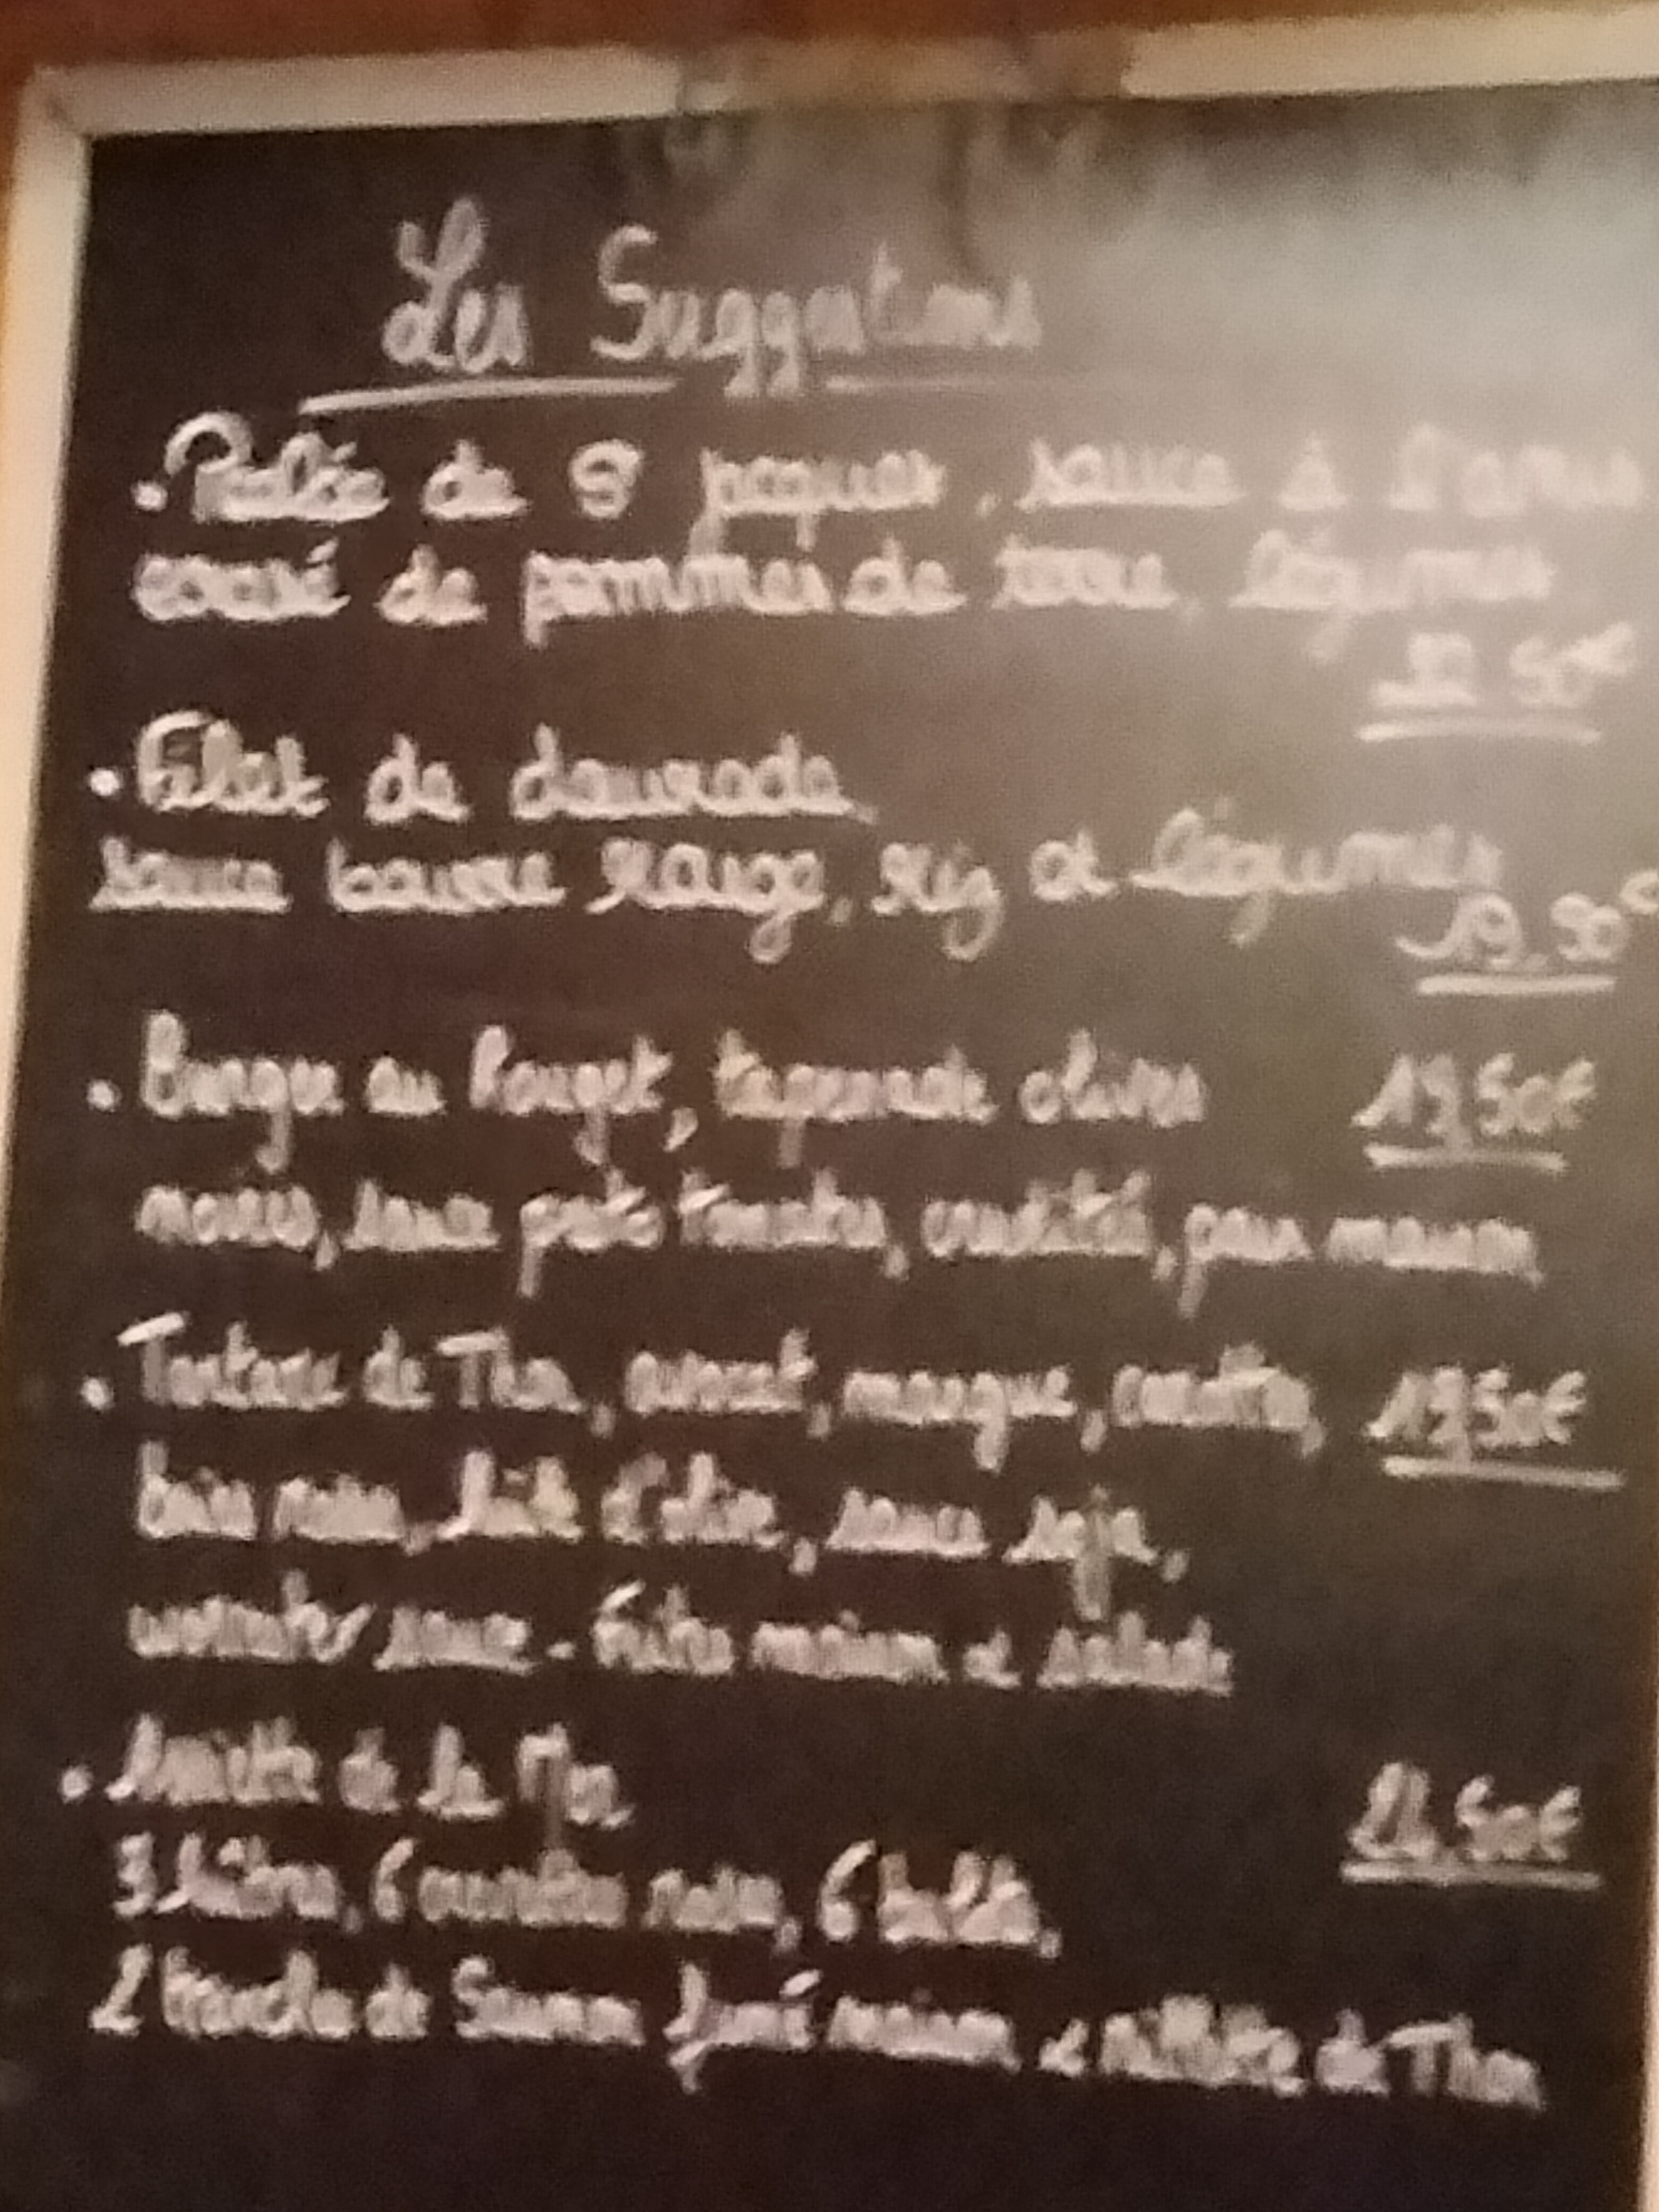 Les Suggestions
• Poêlée de 8 peques, sauce à l'
écrasé de pommes de terre, légumes
50€
• Filet de daurade,
sauce beurre rouge, riz et légumes
19.90€
• Burger au Rouget, tapenade olives 19,50€
noires, sauce pesto tomates, crudités, pain maison
• Tartare de Thon, avocat, mangue, 19,50€
baies roses, huile d'olive, sauce soja,
worcester sauce - frites maison et salade
• Assiette de la Mer
50€
3 huîtres, 6 crevettes roses, 6 bulots,
2 tranches de Saumon fumé maison et rillettes de Thon